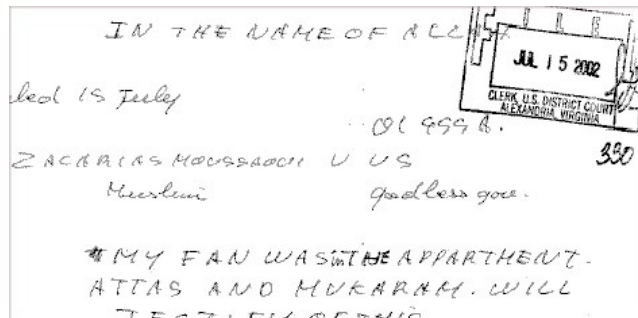 IN THE NAME OF ALLAH
FILE
JUL 15 2002
CLERK, U.S. DISTRICT COURT
ALEXANDRIA, VIRGINIA
led 15 July
01 455 A.
330
ZACARIAS MOUSSAOUI V US
Muslim godless gov.
# MY FAN WAS in THE APPARTMENT.
ATTAS AND MUKARAM. WILL